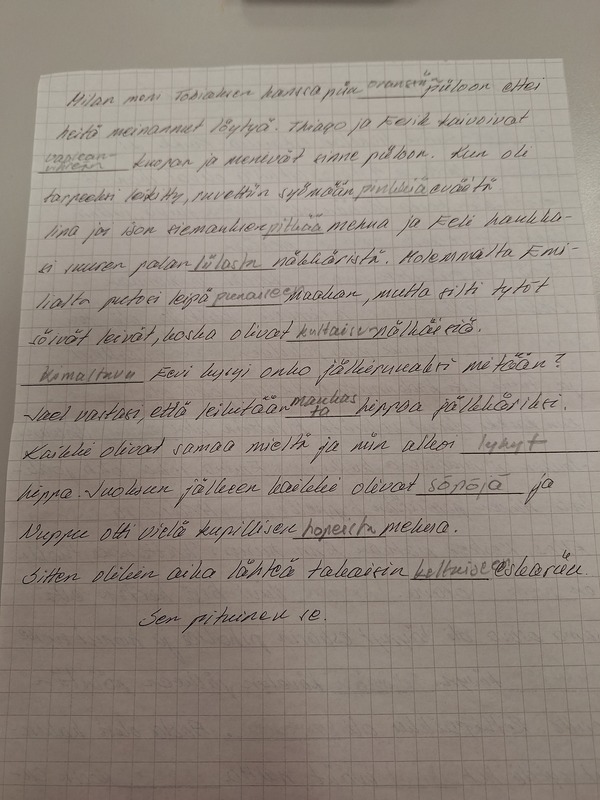 Milan meni Tobiaksen kanssa puu oranssiin piiloon ettei
heitä meinannut löytyä. Thiago ja Eerik kaivoivat
vaalean-
vihreän kuopan ja menivät sinne piiloon. Kun oli
tarpeeksi leikitty, ruvettiin syömään pinkkiä eväitä
Iina joi ison siemauksen pitkää mehua ja Eeli haukka-
si suuren palan liilasta näkkäristä. Molemmalta Emi-
lialta putosi leipä punaiseen maahan, mutta silti tytöt
söivät leivät, koska olivat kultaisen nälkäisiä.
Kimaltava Eevi kysyi onko jälkiruuaksi mitään?
Juel vastasi, että leikitään mahas
ta hippaa jälkkäriksi.
Kaikki olivat samaa mieltä ja niin alkoi lyhyt
hippa. Juoksun jälkeen kaikki olivat söpöjä ja
Nuppu otti vielä kupillisen hopeista mehua.
Sitten olikin aika lähteä takaisin keltaiseen eskariin.
Sen pituinen se.